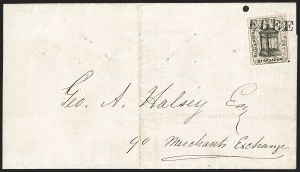 Geo. A. Halsey Esq
90 Merchants Exchange